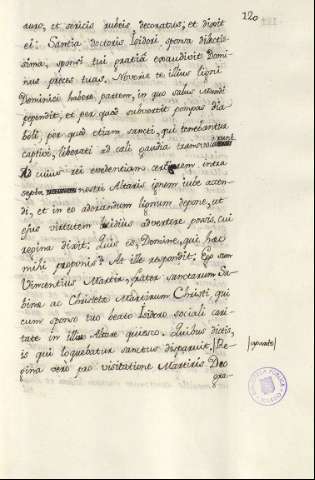 120
auro, et sericis rubeis decoratus, et dixit
ei: Santia doctoris Isidori sponsa dilectis-
sima, sponsi tui gratiâ exaudivit Domi-
nus preces tuas. Noveris te illius ligni
Dominici habere partem, in quo salus mundi
pependit, et per quod subvertit pompas dia-
boli, per quod etiam sancti, qui tenebantur
captivi, liberati ad celi gaudia transvolarunt.
Ad cuius rei evidentiam certiorem intra
septa nostri Altaris ignem iube accen-
di, et in eo adorandum lignum depone, ut
ejus virtutem advertere possis. Cui
regina dixit: Quis es, Domine, qui hæc
mihi proponis? At ille respondit: Ego sum
Vincentius Martir, frater sanctarum Sa-
bine ac Christete Martirum Christi, qui
cum sponso tuo beato Isidoro sociali cari-
tate in illius Altare quiesco. Quibus dictis,
is qui loquebatur sanctus disparuit. Re-
gina verò pro visitatione Martiris Deo
gra-
BIBLIOTECA PUBLICA
TOLEDO